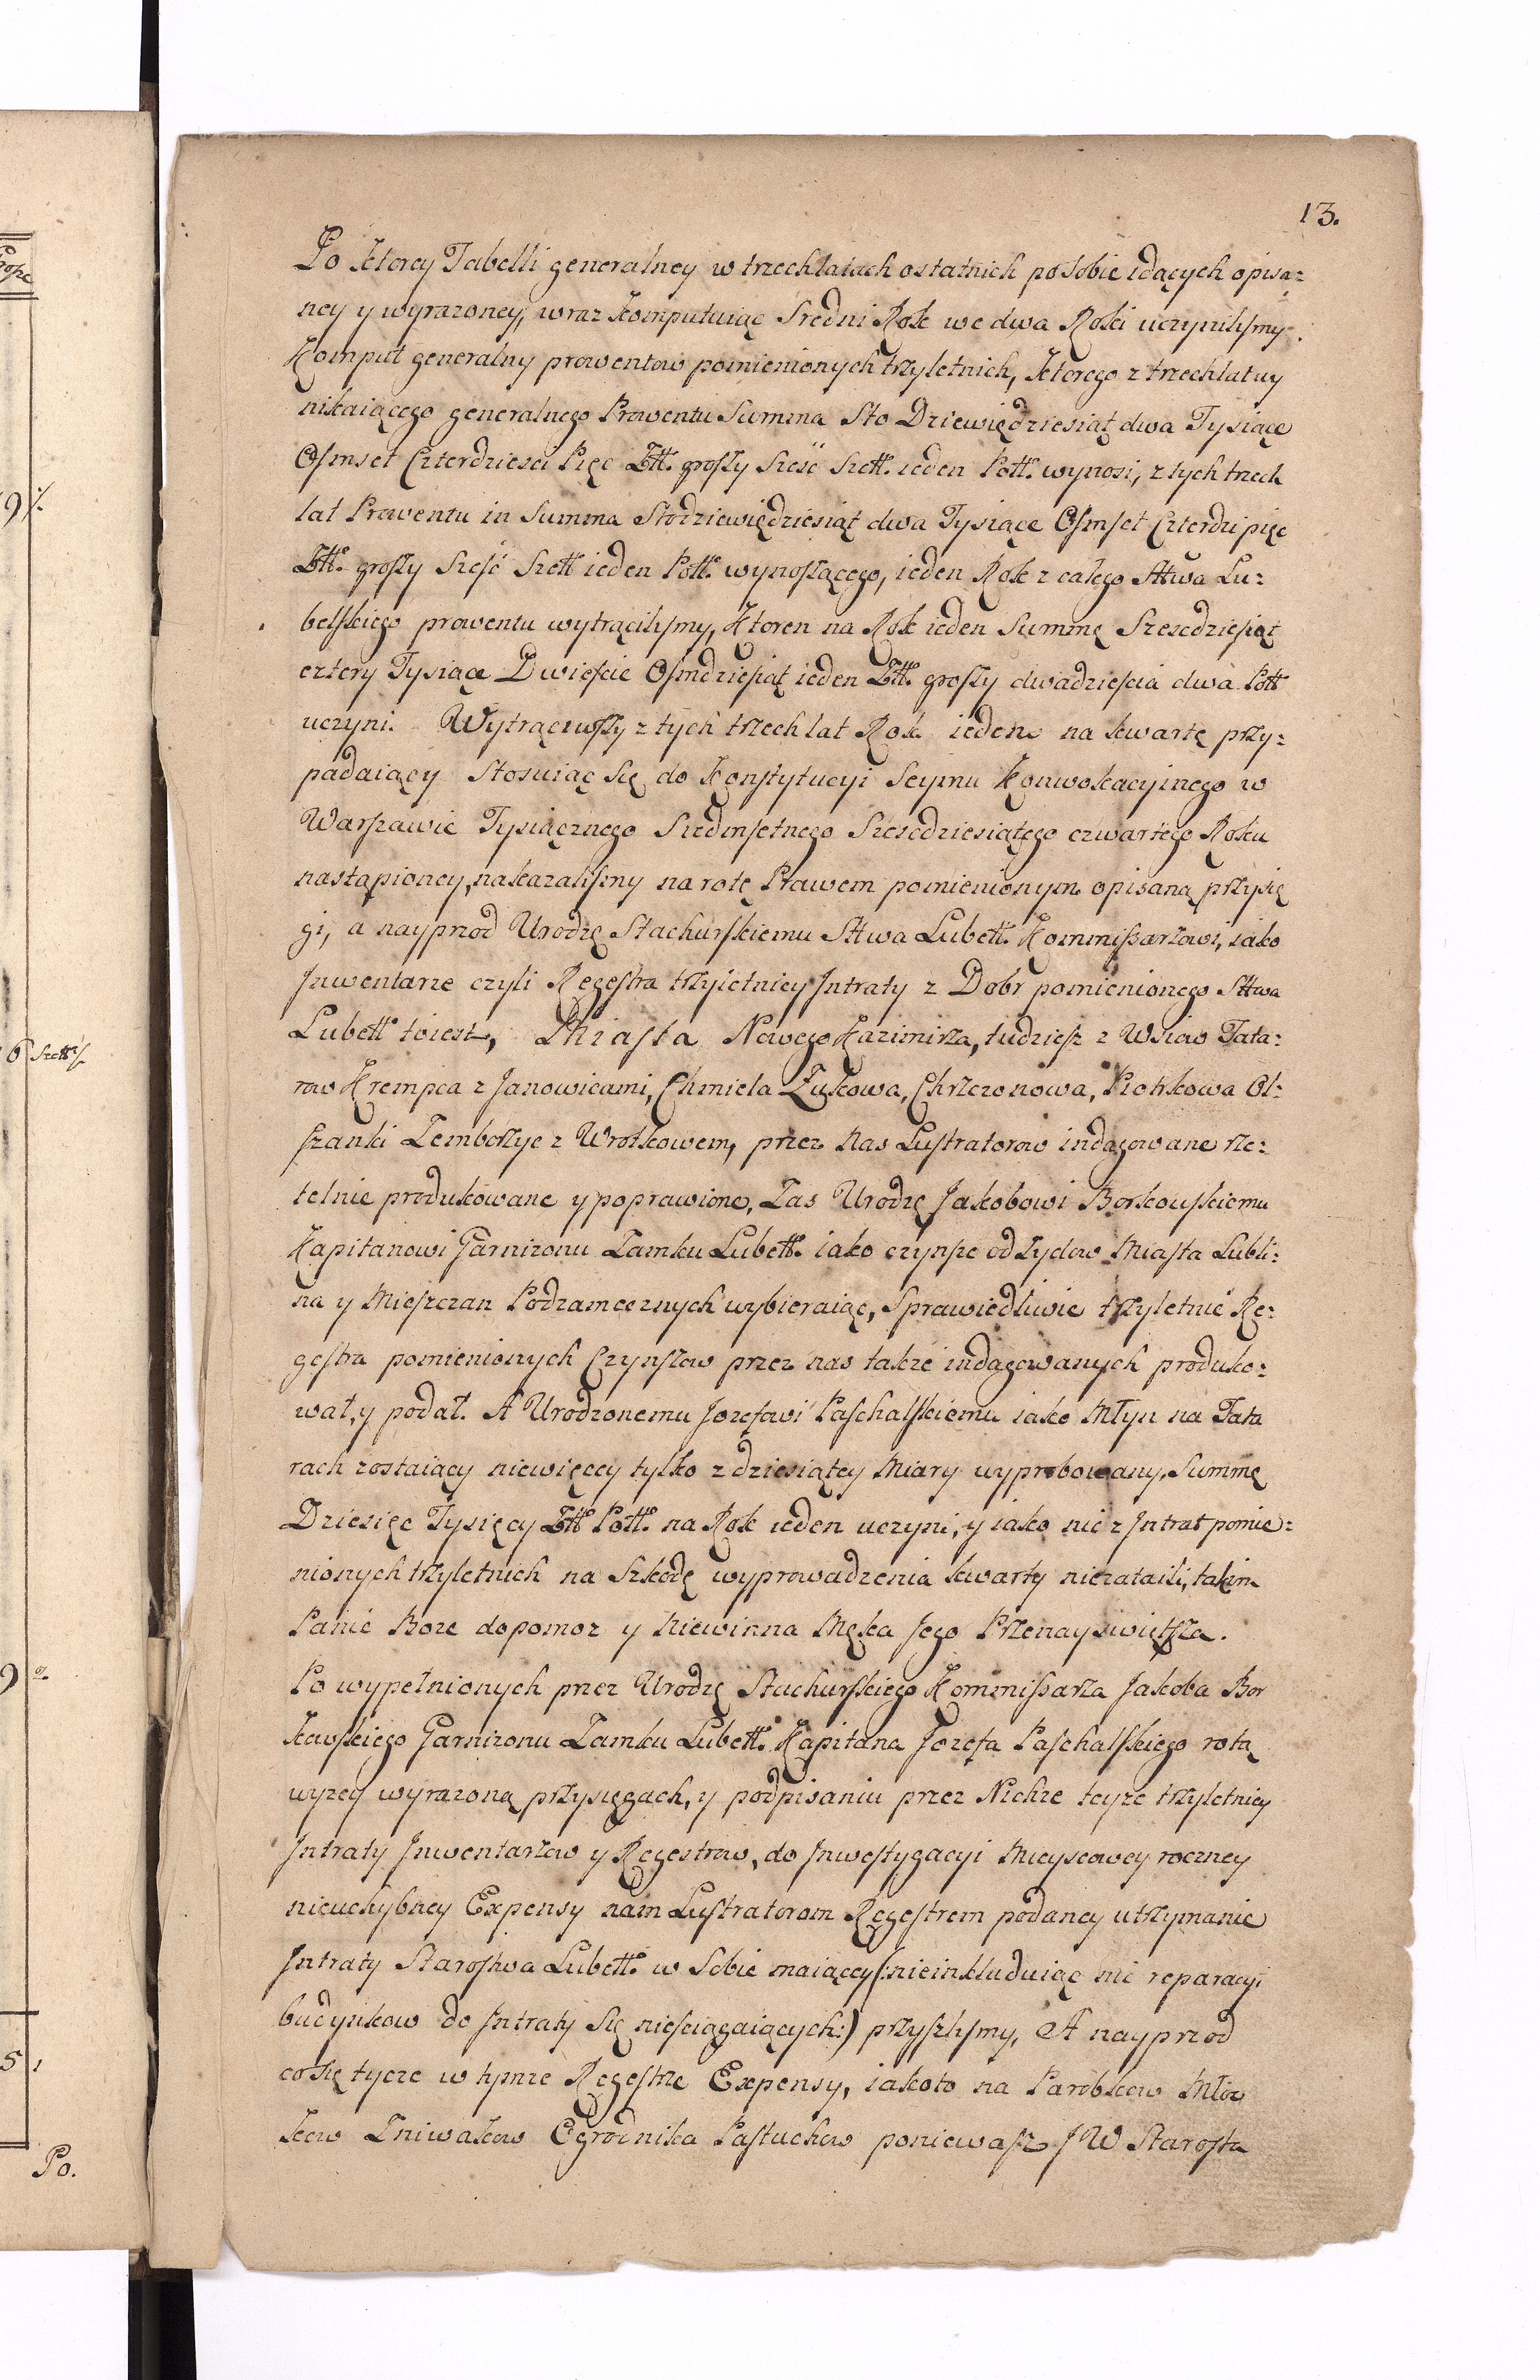 13.
Po ktorey Tabelli generalney w trzech latach ostatnich po sobie idących opisa=
ney y wyrazoney, wraz komputuiąc Sredni Rok we dwa Roki uczynilismy
Komput generalny prowentow pomienionych trzyletnich, ktorego z trzech lat wy
nikaiącego generalnego Prowentu Summa Sto Dziewiędziesiąt dwa Tysiące
Osmset Czterdziesci Pięc Złł. groszy Szesć Szełł. ieden Poll. wynosi, z tych trzech
lat Prowentu in Summa Stodziewiędziesiąt dwa Tysiące Osmset Czterdzi pięc
Złł. groszy Szesć Szell ieden Poll. wynoszącego, ieden Rok z całego Sttwa Lu=
belskiego prowentu wytrącilismy, Ktoren na Rok ieden Summę Szescdziesiąt
cztery Tysiące Dwiescie Osmdziesiąt ieden Złł. groszy dwadziescia dwa Poll
uczyni. Wytrąciwszy z tych trzech lat Rok ieden na kwartę przy=
padaiący Stosuiąc się do Konstytucyi Seymu Konwokacyinego w
Warszawie Tysiącznego Siedmsetnego Szescdziesiątego czwartego Roku
nastąpioney, nakazalismy na rotę Prawem pomienionym opisaną przysię
gi, a nayprzod Urodzę Stachurskiemu Sttwa Lubell. Kommissarzowi, iako
Jnwentarze czyli Regestra trzyletniey Jntraty z Dobr pomienionego Sttwa
Lubell toiest, Miasta Nowego Kazimirza, tudziesz z Wsiow Tata=
row Krempca z Janowicami, Chmiela Zukowa, Chrzczonowa, Piotrkowa Ol=
szanki Zemborzyc z Wrotkowem, przez Nas Lustratorow indagowane rze=
telnie produkowane y poprawione, Zas Urodzę Jakobowi Borkowskiemu
Kapitanowi Garnizonu Zamku Lubell. iako czynsze od Zydow Miasta Lubli=
na y Mieszczan Podzamcznych wybieraiąc, Sprawiedliwie trzyletnie Re=
gestra pomienionych Czynszow przez nas takze indagowanych produko=
wał, y podał. A Urodzonemu Jozefowi Paschalskiemu iako Młyn na Tata
rach zostaiący niewięcey tylko z dziesiątey Miary wyprobowany, Summę
Dziesięc Tysięcy Złł Poll. na Rok ieden uczyni, y iako nic z Jntrat pomie=
nionych trzyletnich na Szkodę wyprowadzenia kwarty niezataili, takim
Panie Boze dopomoz y Niewinna Męka Jego Przenayswiętsza.
Po wypełnionych przez Urodzę Stachurskiego Kommissarza Jakoba Bor
kowskiego Garnizonu Zamku Lubell. Kapitana Jozefa Paschalskiego rotą
wyzey wyrazoną przysięgach, y podpisaniu przez Nichze teyze trzyletniey
Jntraty Jnwentarzow y Regestrow, do Jnwestygacyi Mieyscowey roczney
nieuchybney Expensy nam Lustratorom Regestrem podaney utrzymanie
Jntraty Starostwa Lubell. w Sobie maiącey (:nieinkluduiąc nic reparacyi
budynkow do Jntraty Się niesciągaiących:) przyszlismy, A nayprzod
co się tycze w tymze Regestrze Expensy, iakoto na Parobkow Młoc
kow Zniwakow Ogrodnika Pastuchow poniewasz JW Starosta
Po.